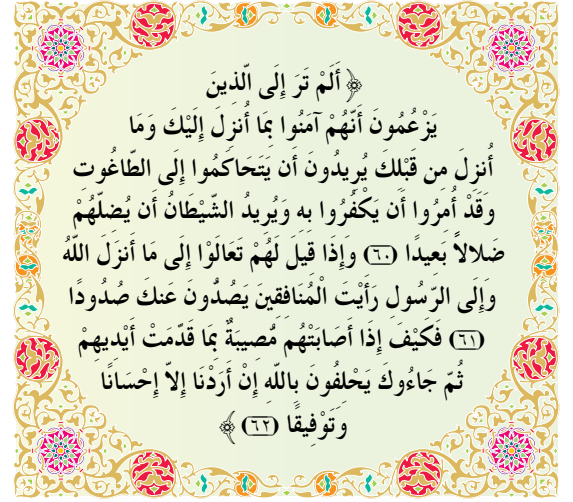 ﴿ أَلَمْ تَرَ إِلَى الّذِينَ
يَزْعُمُونَ أَنّهُمْ آمَنُوا بِمَا أُنزِلَ إِلَيْكَ وَمَا
أُنزِلَ مِن قَبْلك يُرِيدُونَ أَن يَتَحاكَمُوا إِلَى الطّاغُوت
وَقَدْ أُمِرُوا أَن يَكْفُرُوا بِهِ وَيُرِيدُ الشّيْطَانُ أَن يُضلّهُمْ
ضَلالاً بَعِيدًا (٦٠) وإِذَا قِيلَ لَهُمْ تَعَالَوْا إِلَى مَا أَنزَلَ اللّهُ
وَإِلَى الرّسُولِ رَأَيْتَ الْمُنَافِقِينَ يَصُدُّونَ عَنكَ صُدُودًا
(٦١) فَكَيْفَ إِذَا أَصَابَتْهُم مُّصِيبَةٌ بِمَا قَدّمَتْ أَيْدِيهِمْ
ثُمّ جَاءُوكَ يَحْلِفُونَ بِاللّهِ إِنْ أَرَدْنَا إِلاّ إِحْسَانًا
وَتَوْفِيقًا (٦٢) ﴾